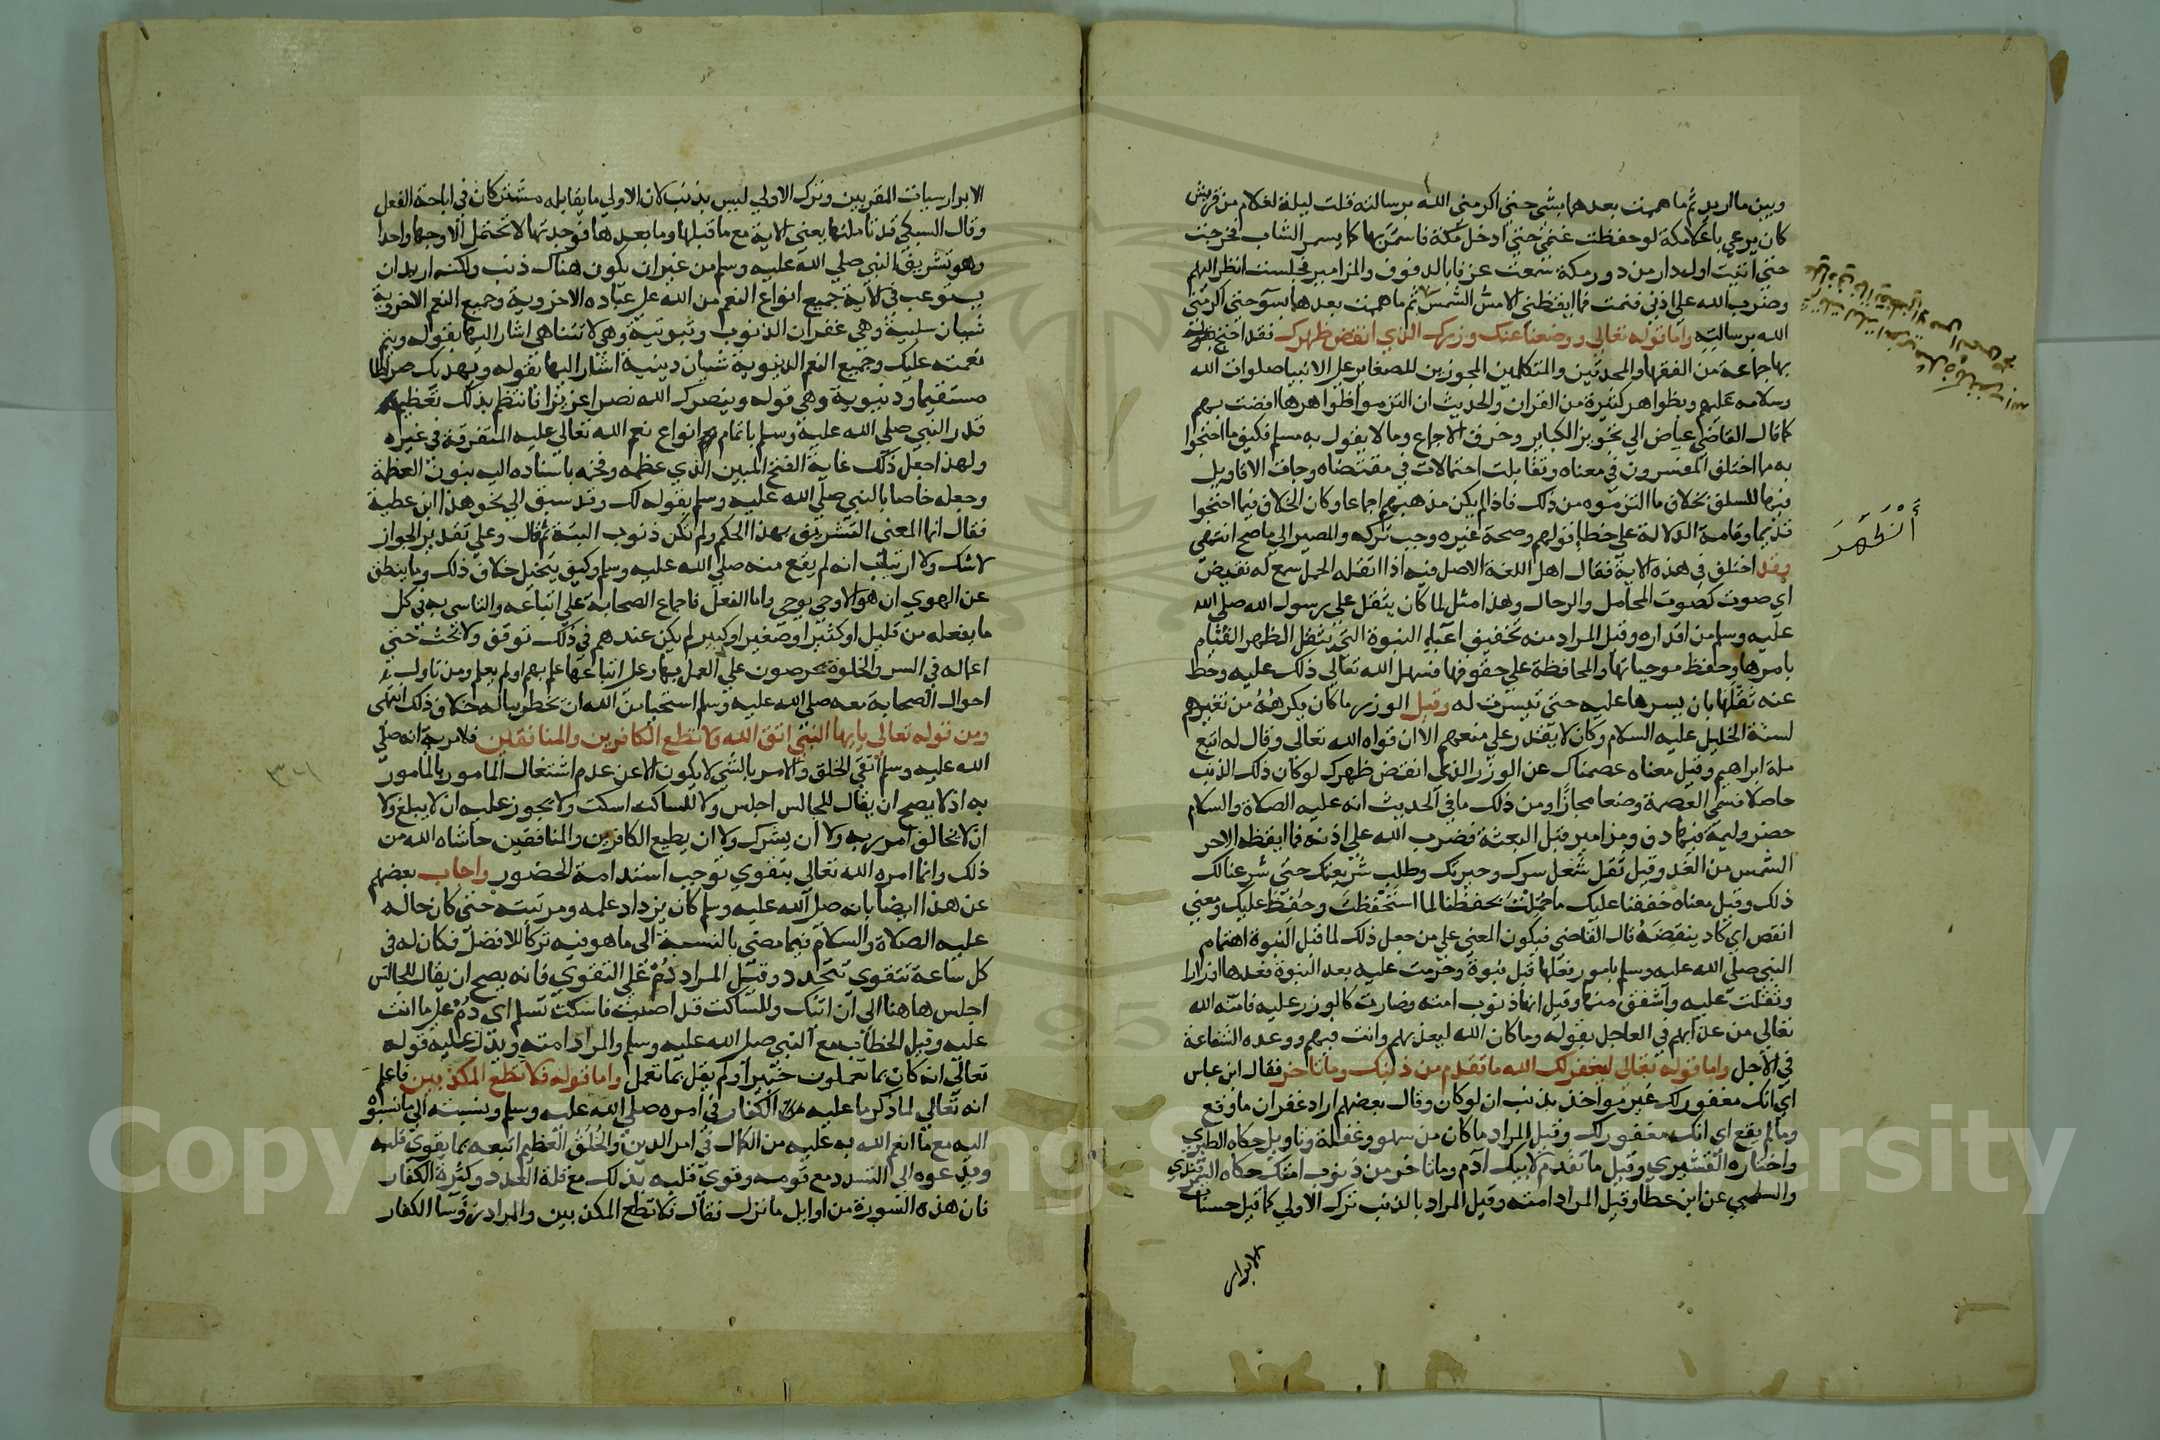 وبين ما اريد ثم ما هممت بعدهما بشي حتي اكرمني الله برسالته قلت ليلة لغلام من قريش
كان يرعي باعلا مكة لو حفظت غنمي حتي ادخل مكة فاسمر بها كما يسمر الشاب فخرجت
حتي اتيت اول دار من دور مكة سمعت عزفا بالدفوف والمزامير فجلست انظر اليهم
وضرب الله علي اذني فنمت فما ايقظني الا مس الشمس ثم ما هممت بعدها بسوء حتي اكرمني
الله برسالته واما قوله تعالي ووضعنا عنك وزرك الذي انقض ظهرك فقد احتج
بها جماعة من الفقها والمحدثين والمتكلمين المجوزين للصغاير علي الانبيا صلوات الله
وسلامه عليهم وبظواهر كثيرة من القران والحديث ان التزموا ظواهرها افضت بهم
كما قال القاضي عياض الي تجويز الكباير وخرق الاجماع وما لا يقول به مسلم فكيف ما احتجوا
به مما اختلف المفسرون في معناه وتقابلت احتمالات في مقتضاه وجات الاقاويل
فيها للسلف بخلاف ما التزموه من ذلك فاذا لم يكن مذهبهم اجماعا وكان الخلاف فيما احتجوا
قديما وقامت الدلالة علي خطا قولهم وصحة غيره وجب تركه والمصير الي ما صح انتهي
وقد اختلف في هذه الاية فقال اهل اللغة الاصل فيه اذا اثقله الحمل سمع له نقيض
اي صوت كصوت المحامل والرحال وهذا مثل لما كان يثقل علي رسول الله صلي الله
عليه وسلم من اقداره وقيل المراد منه تخفيف اعباء النبوة التي يثقل الظهر القيام
بامورها وحفظ موجباتها والمحافظة علي حقوقها فسهل الله تعالي ذلك عليه وحط
عنه ثقلها بان يسرها عليه حتي تيسرت له وقيل الوزر ما كان يكرهه من تغييرهم
لسنة الخليل عليه السلام وكان لا يقدر علي منعهم الا ان قواه الله تعالي وقال له اتبع
ملة ابراهيم وقيل معناه عصمناك عن الوزر الذي انقض ظهرك لو كان ذلك الذنب
حاصلا فسمي العصمة وضعا مجازا ومن ذلك ما في الحديث انه عليه الصلاة والسلام
حضر وليمة فيها دف ومزامير قبل البعثة فضرب الله علي اذنه فما ايقظه الا حر
الشمس من الغد وقيل ثقل شغل سرك وحيرتك وطلب شريعتك حتي شرعنا لك
ذلك وقيل معناه خففنا عليك ما حملت بحفظنا لما استحفظت وحفظ عليك ومعني
انقض اي كاد ينقضه قال القاضي فيكون المعني علي من جعل ذلك لما قبل النبوة اهتمام
النبي صلي الله عليه وسلم بامور فعلها قبل نبوة وحرمت عليه بعد النبوة فعدها اوزارا
وثقلت عليه واشفق منها وقيل انها ذنوب امته وصارت كالوزر عليه فامنه الله
تعالي من عذابهم في العاجل بقوله وما كان الله ليعذبهم وانت فيهم ووعده الشفاعة
في الاجل واما قوله تعالي ليغفر لك الله ما تقدم من ذنبك وما تاخر فقال ابن عباس
اي انك مغفور لك غير مواخذ بذنب ان لو كان وقال بعضهم اراد غفران ما وقع
وما لم يقع اي انك مغفور لك وقيل المراد ما كان من سهو وغفلة وتاويل حكاه الطبري
واختاره القشيري وقيل ما تقدم لابيك ادم وما تاخر من ذنوب امتك حكاه السمرقندي
والسلمي عن ابن عطا وقيل المراد امته وقيل المراد بالذنب ترك الاولي كما قيل حسنات
الابرار
أَنْقَضَ ظَهْرَ
الابرار سيات المقربين وترك الاولي ليس بذنب لان الاولي ما يقابله مشتركان في اباحة الفعل
وقال السبكي قد تاملتها يعني الاية مع ما قبلها وما بعدها فوجدتها لا تحتمل الا وجها واحدا
وهو تشريف النبي صلي الله عليه وسلم من غير ان يكون هناك ذنب ولكنه اريد ان
يستوعب في الاية جميع انواع النعم من الله علي عباده الاخروية وجميع النعم الاخروية
شيان سلبية وهي غفران الذنوب وثبوتية وهي لا تتناهي اشار اليها بقوله ويتم
نعمته عليك وجميع النعم الدنيوية شيان دينية اشار اليها بقوله ويهديك صراطا
مستقيما ودنيوية وهي قوله وينصرك الله نصرا عزيزا فانتظم بذلك تعظيم
قدر النبي صلي الله عليه وسلم باتمام انواع نعم الله تعالي عليه المتفرقة في غيره
ولهذا جعل ذلك غاية الفتح المبين الذي عظمه وفخمه باسناده اليه بنون العظمة
وجعله خاصا بالنبي صلي الله عليه وسلم بقوله لك وقد سبق الي نحو هذا ابن عطية
فقال انما المعني التشريف بهذا الحكم ولم تكن ذنوب البتة ثم قال وعلي تقدير الجواز
لا شك ولا ارتياب انه لم يقع منه صلي الله عليه وسلم وكيف يتخيل خلاف ذلك وما ينطق
عن الهوي ان هو الا وحي يوحي واما الفعل فاجماع الصحابة علي اتباعه والتاسي به في كل
ما يفعله من قليل او كثير او صغير او كبير لم يكن عندهم في ذلك توقف ولا بحث حتي
اعماله في السر والخلوة يحرصون علي العلم بها وعلي اتباعها علم بهم او لم يعلم ومن تاول
احوال الصحابة معه صلي الله عليه وسلم استحيا من الله ان يخطر بباله خلاف ذلك انتهي
ومن قوله تعالي يا ايها النبي اتق الله ولا تطع الكافرين والمنافقين فلا مرية انه صلي
الله عليه وسلم اتقي الخلق والامر بالشي لا يكون الا عن عدم اشتغال المامور بالمامور
به اذ لا يصح ان يقال للجالس اجلس ولا للساكت اسكت ولا يجوز عليه ان لا يبلغ ولا
ان يخالف امر ربه ولا ان يشرك ولا ان يطيع الكافرين والمنافقين حاشاه الله من
ذلك وانما امره الله تعالي بتقوي توجب استدامة الحضور واجاب بعضهم
عن هذا ايضا بانه صلي الله عليه وسلم كان يزداد علمه ومرتبته حتي كان حاله
عليه الصلاة والسلام فيما مضي بالنسبة الي ما هو فيه تركا للافضل فكان له في
كل ساعة تقوي تتجدد وقيل المراد دم علي التقوي فانه يصح ان يقال للجالس
اجلس هاهنا الي ان اتيك وللساكت قد اصبت فاسكت تسلم اي دم علي ما انت
عليه وقيل الخطاب مع النبي صلي الله عليه وسلم والمراد امته ويدل عليه قوله
تعالي انه كان بما تعملون خبيرا ولم يقل بما تعمل واما قوله فلا تطع المكذبين فاعلم
انه تعالي لما ذكر ما عليه الكفار في امره صلي الله عليه وسلم ونسبته الي ما نسبوه
اليه مع ما انعم الله به عليه من الكمال في امر الدين والخلق العظيم اتبعه بما يقوي قلبه
ويدعوه الي التشدد مع قومه وقوي قلبه بذلك مع قلة العدد وكثرة الكفار
فان هذه السورة من اوايل ما نزل فقال فلا تطع المكذبين والمراد روسا الكفار